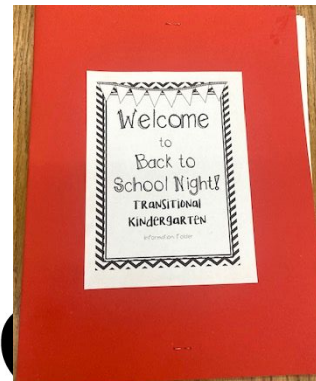 Welcome
to
Back to
School Night!
TRANSITIONAL
KINDERGARTEN
Information Folder